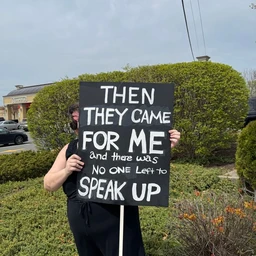 THEN
THEY CAME
FOR ME
and there was
NO ONE Left to
SPEAK UP